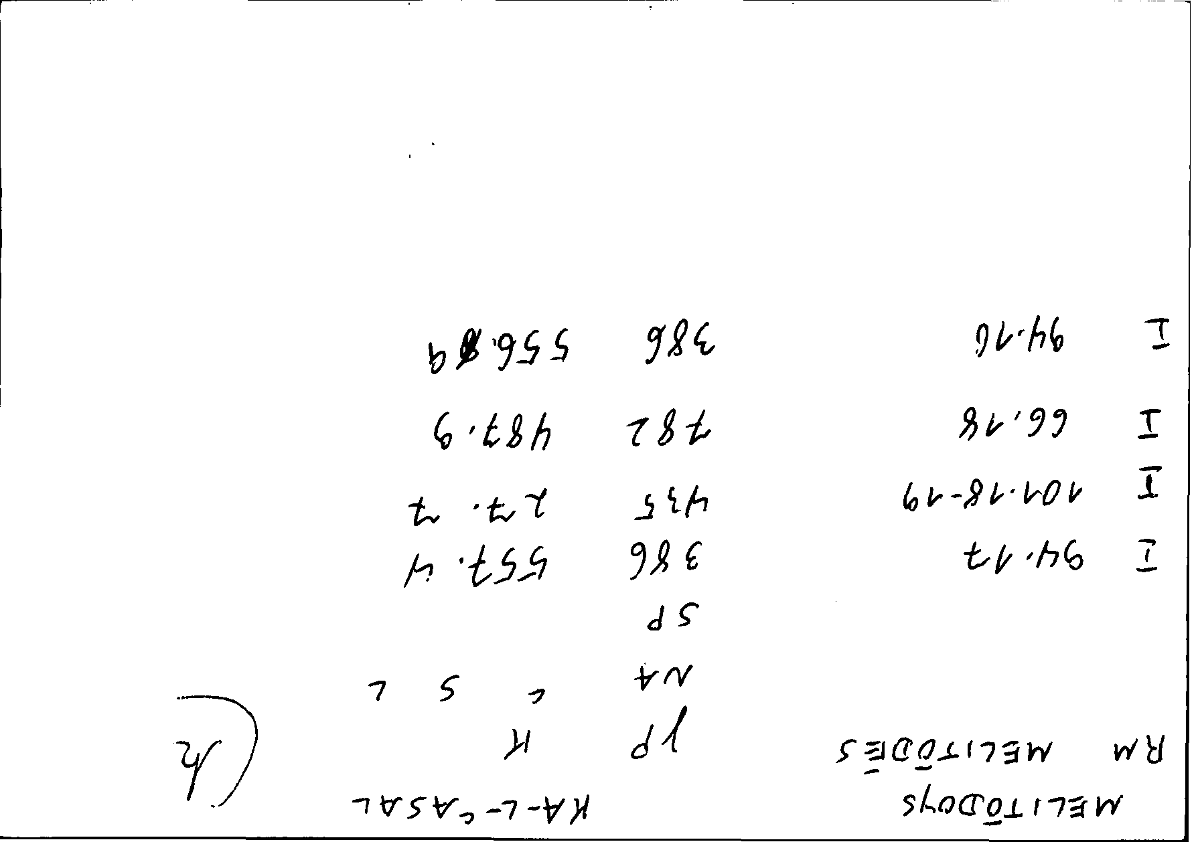 MELITŌDOYS KA-L-CASAL
RM MELITŌDĒS P K
NA C S L
SP
I 94.17 386 557.4
I 101.18-19 435 27.7
I 66.18 782 487.9
I 94.16 386 556.9